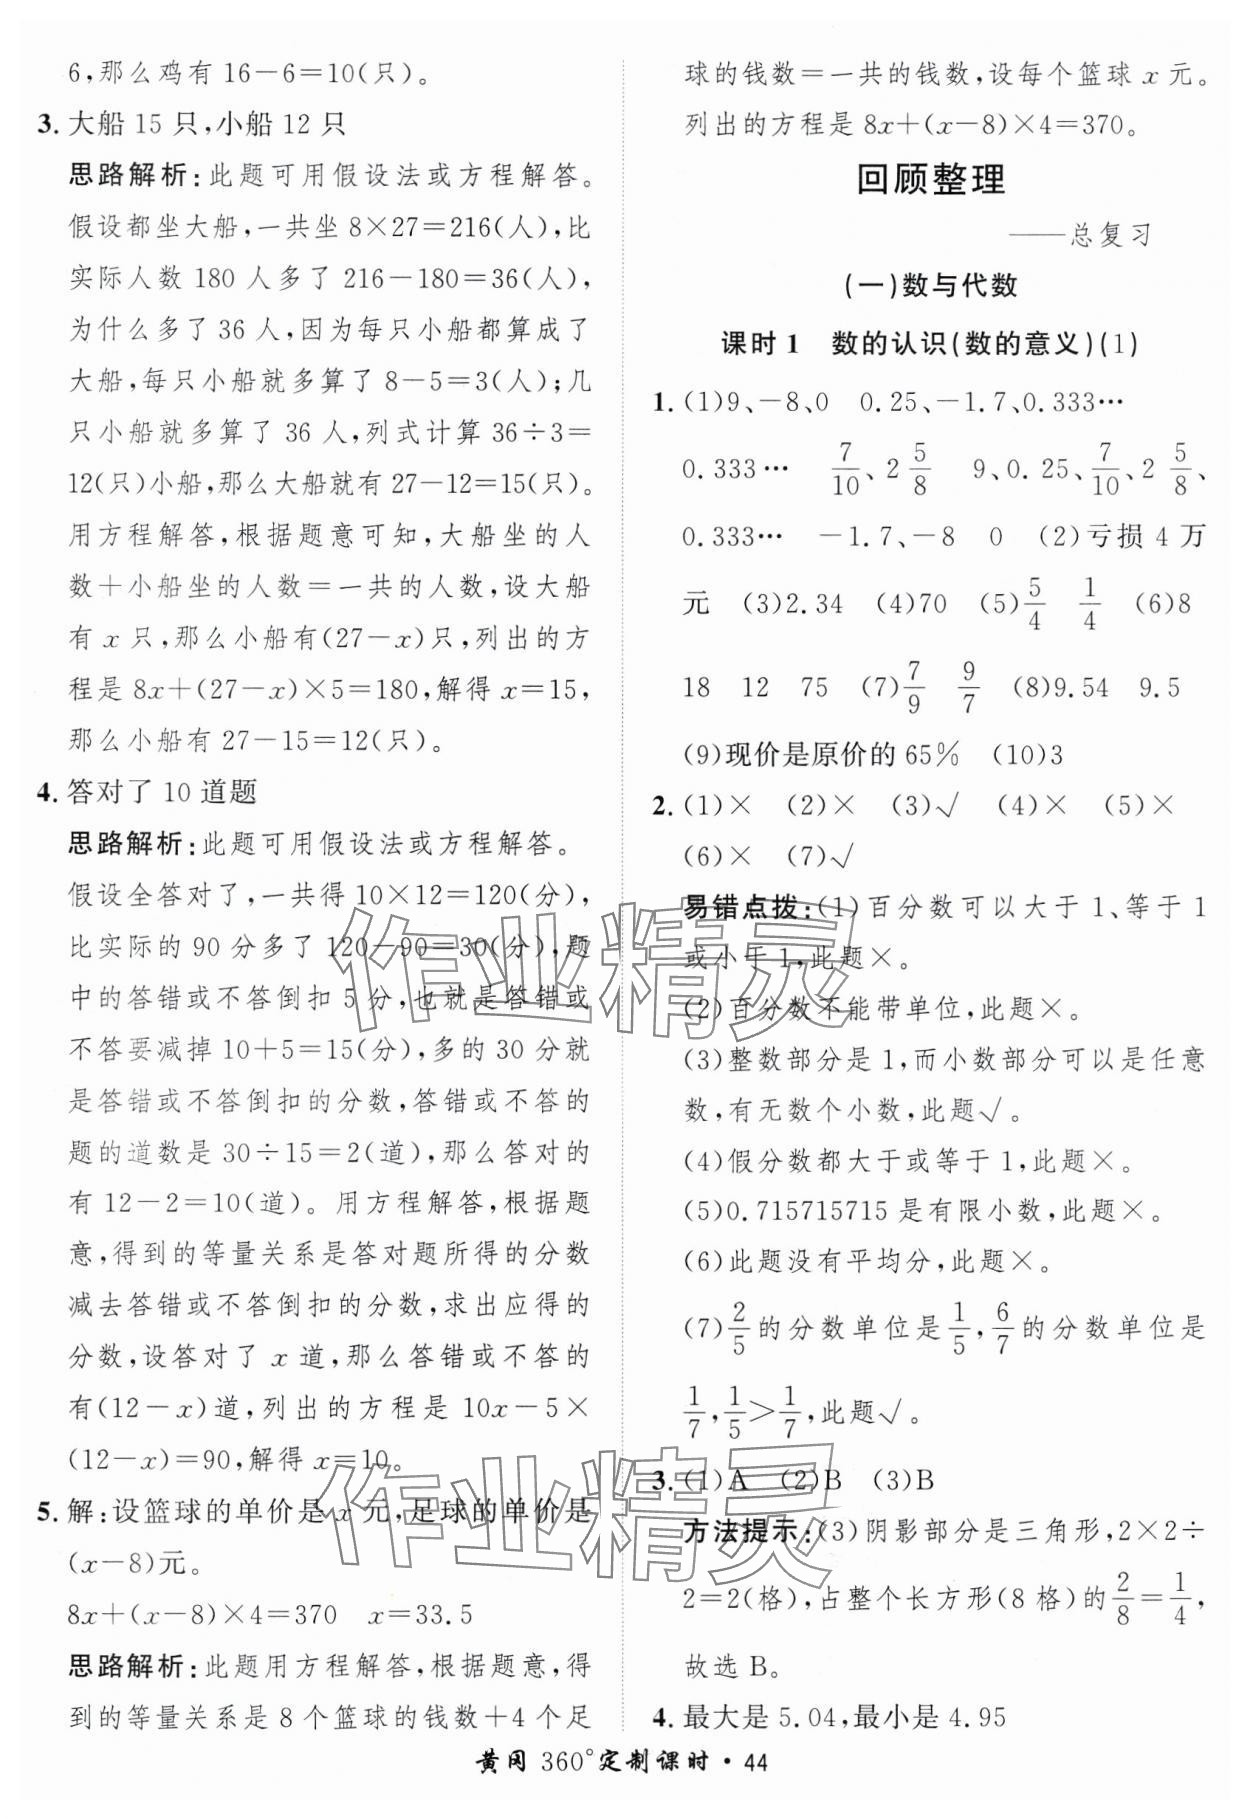 6,那么鸡有16-6=10(只)。
3. 大船15只,小船12只
思路解析:此题可用假设法或方程解答。
假设都坐大船,一共坐8×27=216(人),比
实际人数180人多了216-180=36(人),
为什么多了36人,因为每只小船都算成了
大船,每只小船就多算了8-5=3(人);几
只小船就多算了36人,列式计算36÷3=
12(只)小船,那么大船就有27-12=15(只)。
用方程解答,根据题意可知,大船坐的人
数+小船坐的人数=一共的人数,设大船
有x只,那么小船有(27-x)只,列出的方
程是8x+(27-x)×5=180,解得x=15,
那么小船有27-15=12(只)。
4. 答对了10道题
思路解析:此题可用假设法或方程解答。
假设全答对了,一共得10×12=120(分),
比实际的90分多了120-90=30(分),题
中的答错或不答倒扣5分,也就是答错或
不答要减掉10+5=15(分),多的30分就
是答错或不答倒扣的分数,答错或不答的
题的道数是30÷15=2(道),那么答对的
有12-2=10(道)。用方程解答,根据题
意,得到的等量关系是答对题所得的分数
减去答错或不答倒扣的分数,求出应得的
分数,设答对了x道,那么答错或不答的
有(12-x)道,列出的方程是10x-5×
(12-x)=90,解得x=10。
5. 解:设篮球的单价是x元,足球的单价是
(x-8)元。
8x+(x-8)×4=370 x=33.5
思路解析:此题用方程解答,根据题意,得
到的等量关系是8个篮球的钱数+4个足
球的钱数=一共的钱数,设每个篮球x元。
列出的方程是8x+(x-8)×4=370。
回顾整理
——总复习
(一)数与代数
课时1 数的认识(数的意义)(1)
1. (1)9、-8、0 0.25、-1.7、0.333…
0.333… 7/10、2 5/8 9、0.25、7/10、2 5/8、
0.333… -1.7、-8 0 (2)亏损4万
元 (3)2.34 (4)70 (5)5/4 1/4 (6)8
18 12 75 (7)7/9 9/7 (8)9.54 9.5
(9)现价是原价的65% (10)3
2. (1)× (2)× (3)√ (4)× (5)×
(6)× (7)√
易错点拨:(1)百分数可以大于1、等于1
或小于1,此题×。
(2)百分数不能带单位,此题×。
(3)整数部分是1,而小数部分可以是任意
数,有无数个小数,此题√。
(4)假分数都大于或等于1,此题×。
(5)0.715715715是有限小数,此题×。
(6)此题没有平均分,此题×。
(7)2/5的分数单位是1/5,6/7的分数单位是
1/7,1/5>1/7,此题√。
3. (1)A (2)B (3)B
方法提示:(3)阴影部分是三角形,2×2÷
2=2(格),占整个长方形(8格)的2/8=1/4,
故选B。
4. 最大是5.04,最小是4.95
黄冈 360°定制课时·44
作业精灵
作业精灵